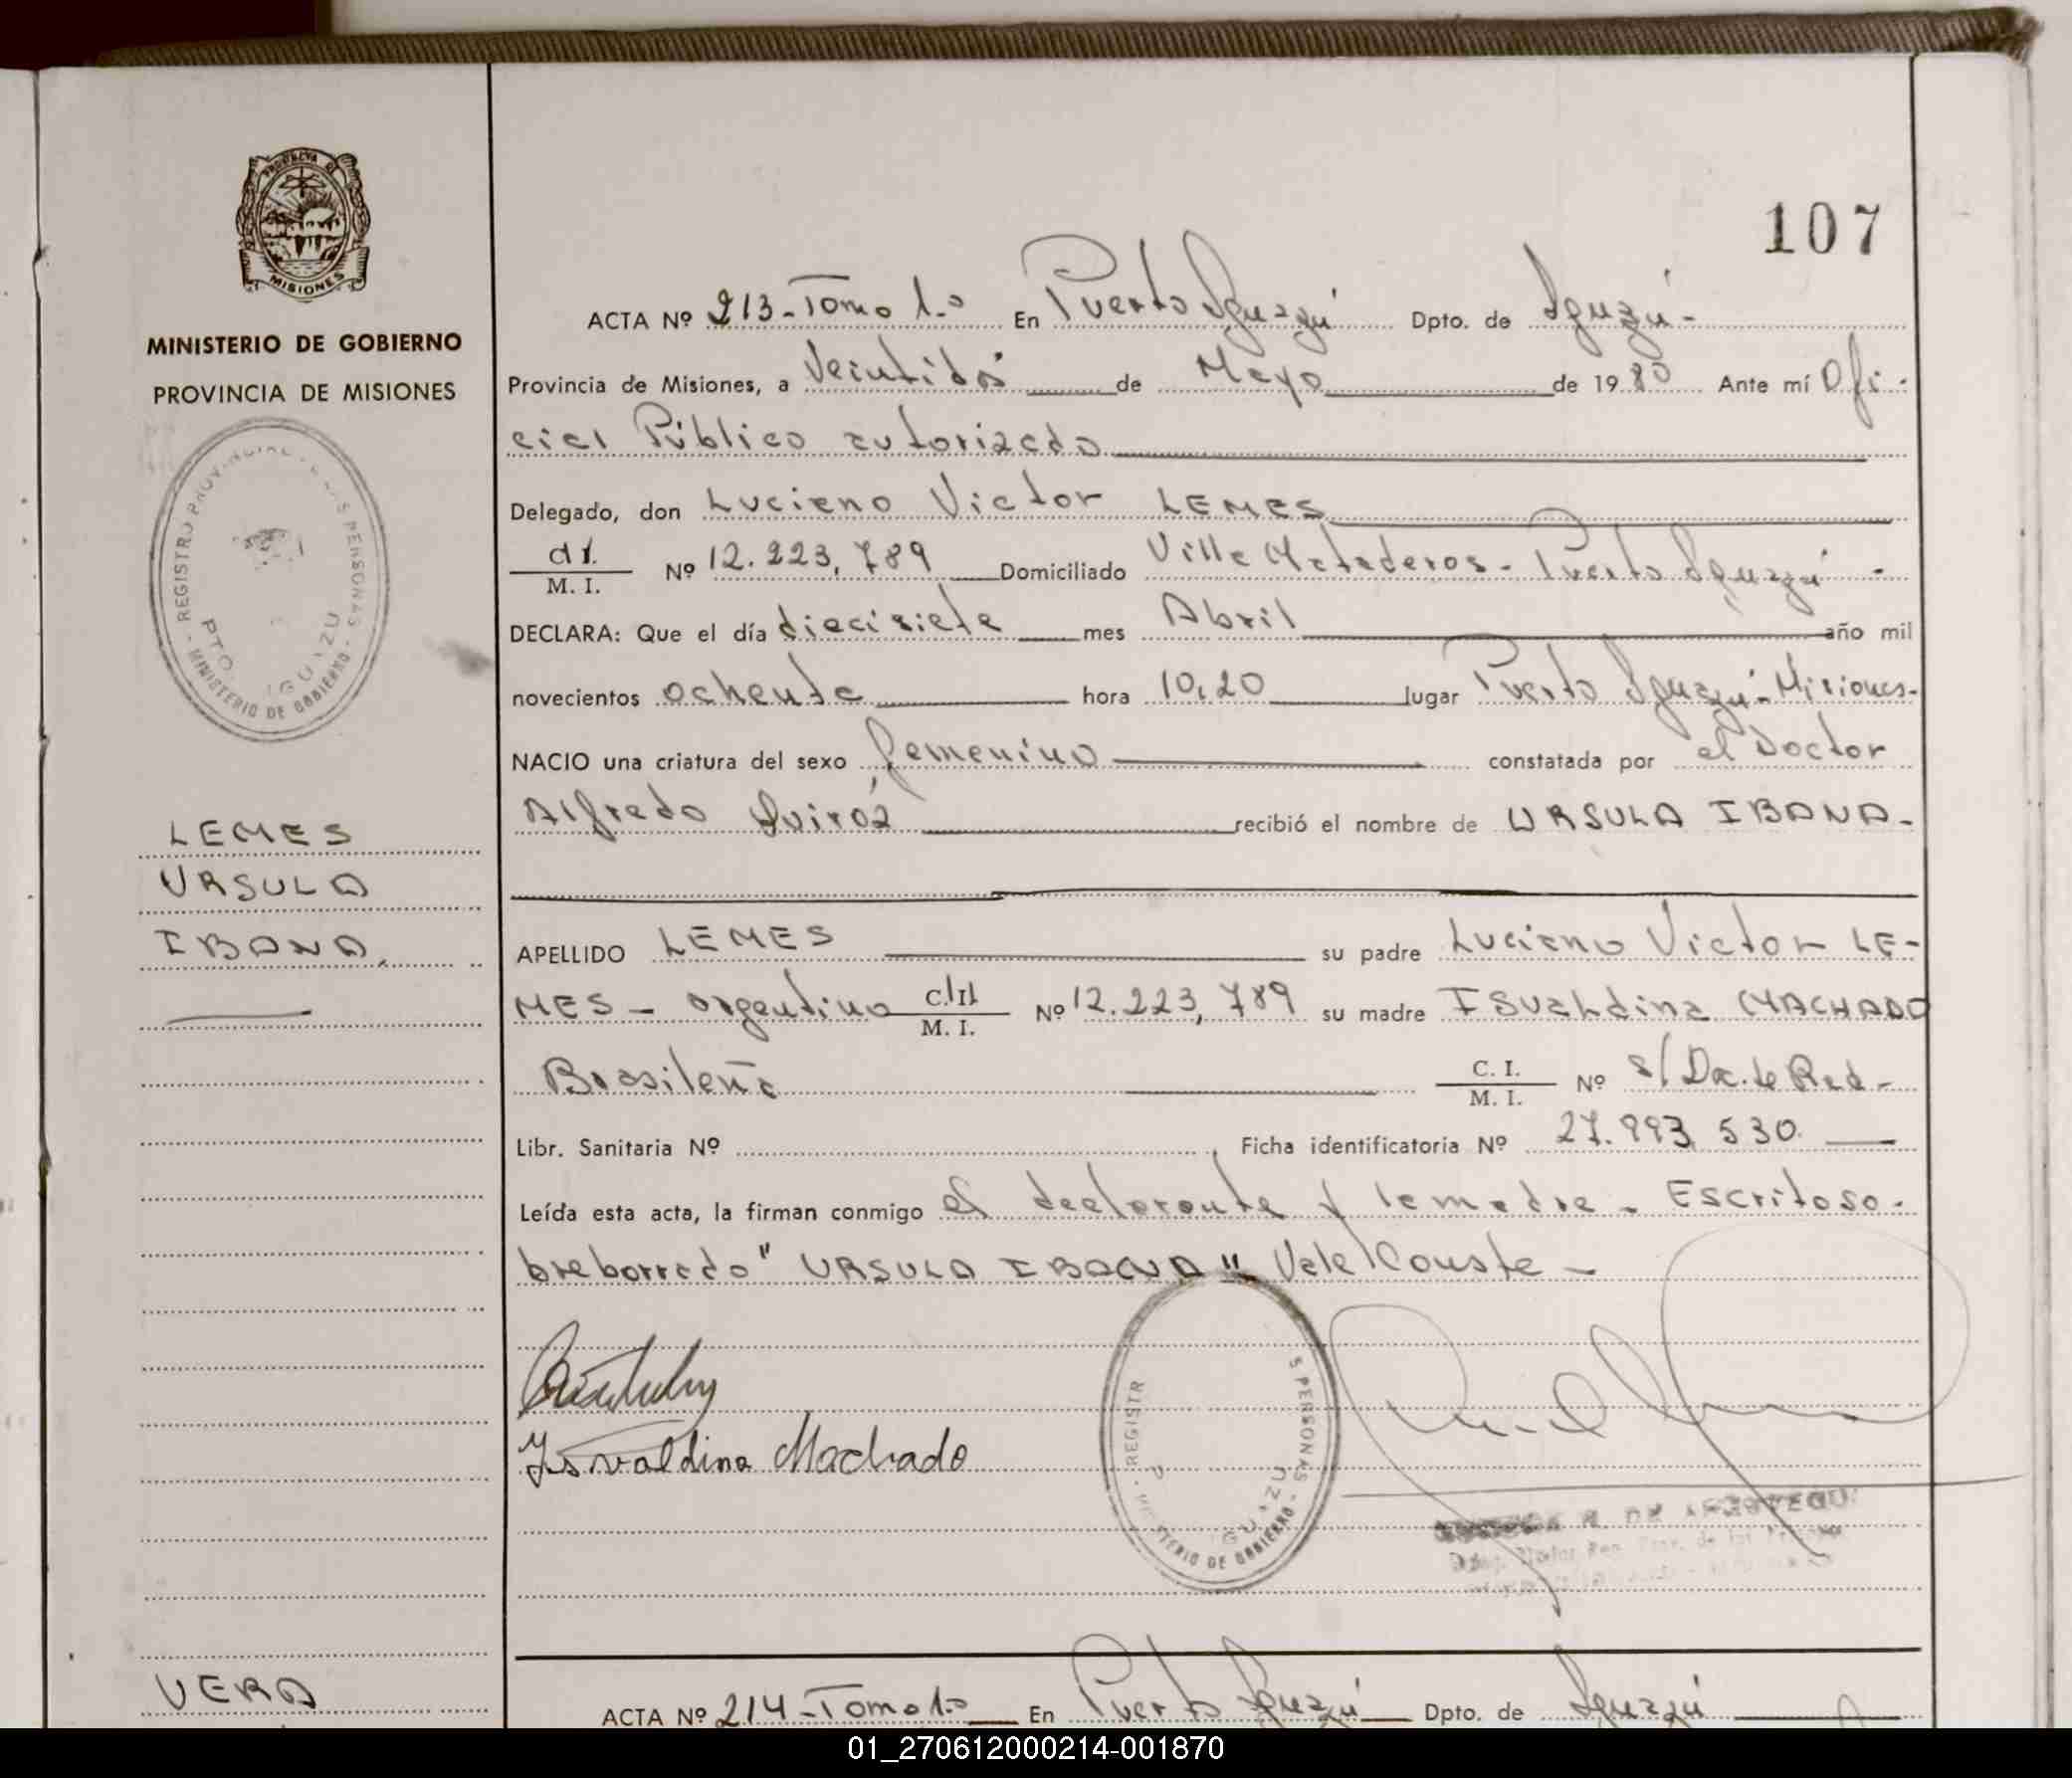 107
PROVINCIA DE
MISIONES
MINISTERIO DE GOBIERNO
PROVINCIA DE MISIONES
REGISTRO PROVINCIAL DE LAS PERSONAS - MINISTERIO DE GOBIERNO -
PTO. IGUAZU
LEMES
URSULA
IBANA.
ACTA Nº 213-Tomo 1-º En Puerto Iguazú Dpto. de Iguazú-
Provincia de Misiones, a Veintidós de Mayo de 1980 Ante mí Ofi-
cial Público autorizado
Delegado, don Luciano Victor LEMES
M. I. Nº 12.223,789 Domiciliado Villa Mataderos - Puerto Iguazú -
DECLARA: Que el día diecisiete mes Abril año mil
novecientos ochenta hora 10,20 lugar Puerto Iguazú-Misiones-
NACIO una criatura del sexo femenino constatada por el Doctor
Alfredo Quiróz recibió el nombre de URSULA IBANA-
APELLIDO LEMES su padre Luciano Victor LE-
MES - argentino C.I. M. I. Nº 12.223,789 su madre Isvaldina MACHADO
Brasileña C. I. M. I. Nº s/Doc. de Rad-
Libr. Sanitaria Nº Ficha identificatoria Nº 27.993.530.
Leída esta acta, la firman conmigo el declarante y la madre - Escrito so-
breborrado "URSULA IBANA" Vale/Conste -
Isvaldina Machado
REGISTR S PERSONAS - TERIO DE GOBIERNO -
VERA
ACTA Nº 214-Tomo 1-º En Puerto Iguazú Dpto. de Iguazú
01_270612000214-001870